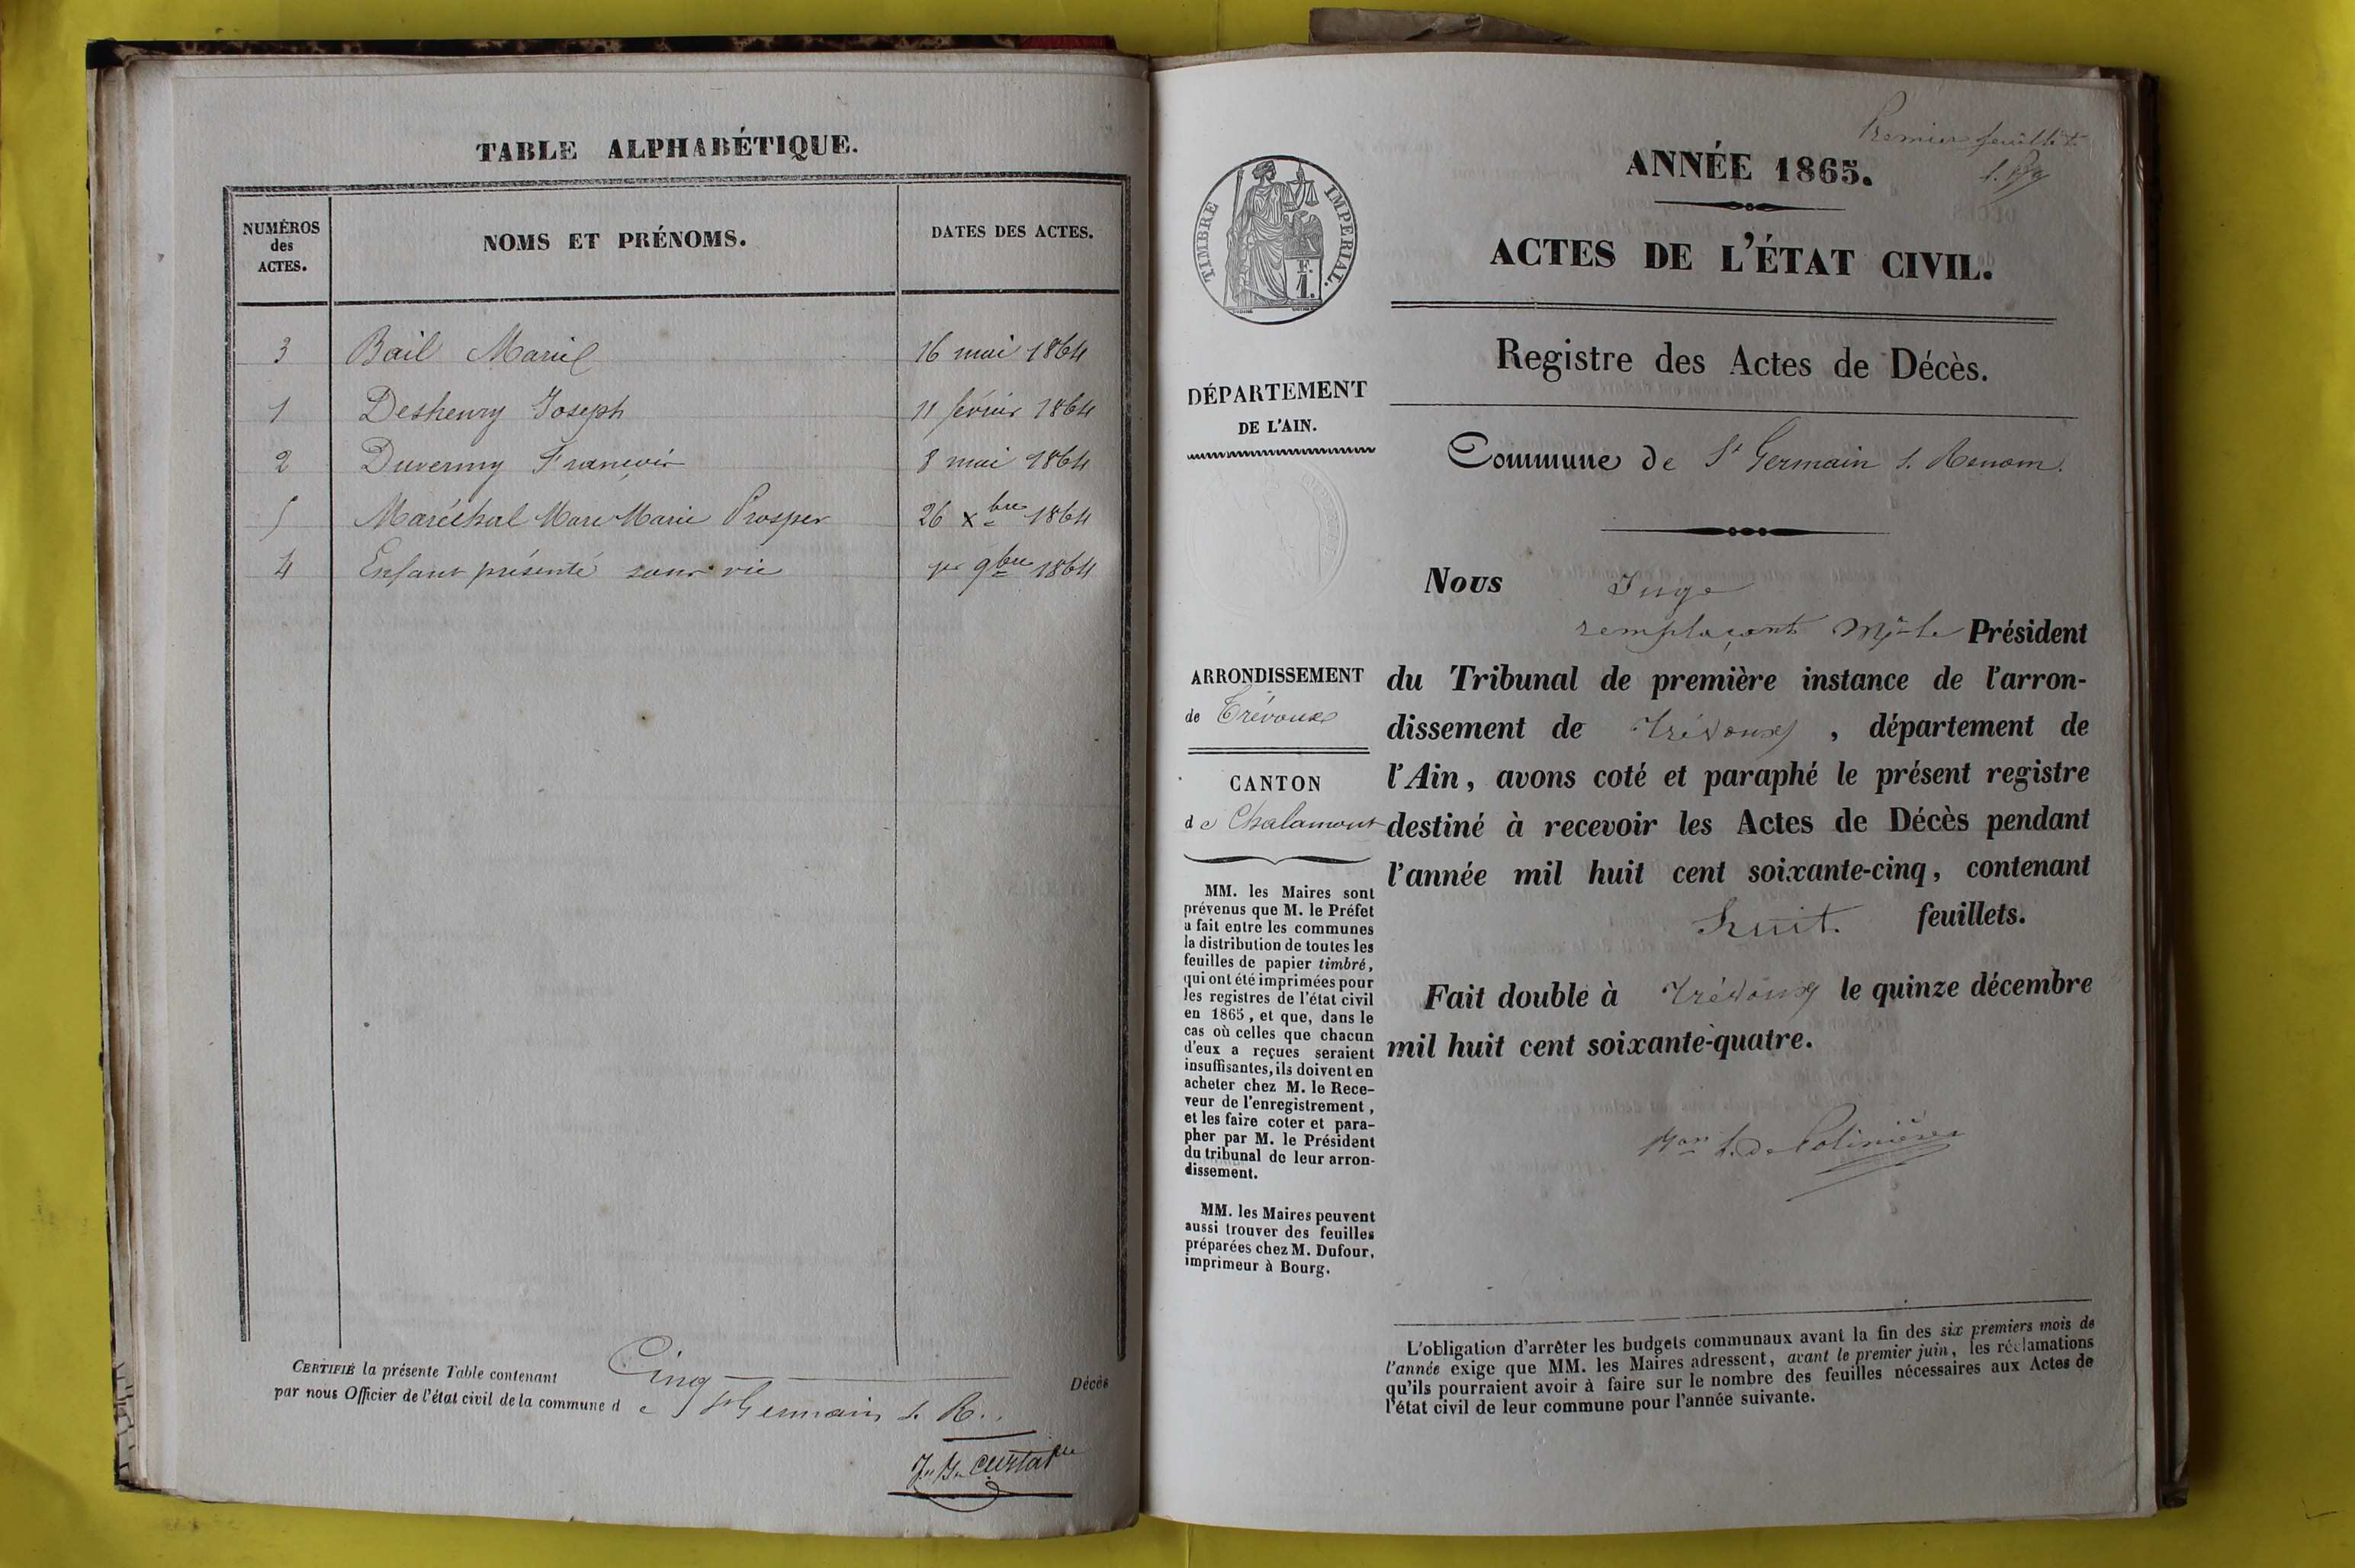 TABLE ALPHABÉTIQUE.
NUMÉROS des ACTES. NOMS ET PRÉNOMS. DATES DES ACTES.
3 Bail Marie 16 mai 1864
1 Deshenry Joseph 11 février 1864
2 Duverny François 8 mai 1864
5 Maréchal Marc Marie Prosper 26 Xbre 1864
4 Enfant présenté sans vie 1er 9bre 1864
CERTIFIÉ la présente Table contenant Cinq Décès
par nous Officier de l'état civil de la commune de St Germain s. R.
Premier feuillet
TIMBRE IMPÉRIAL.
F.
1.
ANNÉE 1865.
ACTES DE L'ÉTAT CIVIL.
Registre des Actes de Décès.
Commune de St Germain s. Renom.
DÉPARTEMENT
DE L'AIN.
ARRONDISSEMENT
de Trévoux
CANTON
de Chalamont
MM. les Maires sont
prévenus que M. le Préfet
a fait entre les communes
la distribution de toutes les
feuilles de papier timbré,
qui ont été imprimées pour
les registres de l'état civil
en 1865, et que, dans le
cas où celles que chacun
d'eux a reçues seraient
insuffisantes, ils doivent en
acheter chez M. le Rece-
veur de l'enregistrement,
et les faire coter et para-
pher par M. le Président
du tribunal de leur arron-
dissement.
MM. les Maires peuvent
aussi trouver des feuilles
préparées chez M. Dufour,
imprimeur à Bourg.
Nous Juge
remplaçant Mr le Président
du Tribunal de première instance de l'arron-
dissement de Trévoux, département de
l'Ain, avons coté et paraphé le présent registre
destiné à recevoir les Actes de Décès pendant
l'année mil huit cent soixante-cinq, contenant
huit feuillets.
Fait double à Trévoux le quinze décembre
mil huit cent soixante-quatre.
L'obligation d'arrêter les budgets communaux avant la fin des six premiers mois de
l'année exige que MM. les Maires adressent, avant le premier juin, les réclamations
qu'ils pourraient avoir à faire sur le nombre des feuilles nécessaires aux Actes de
l'état civil de leur commune pour l'année suivante.